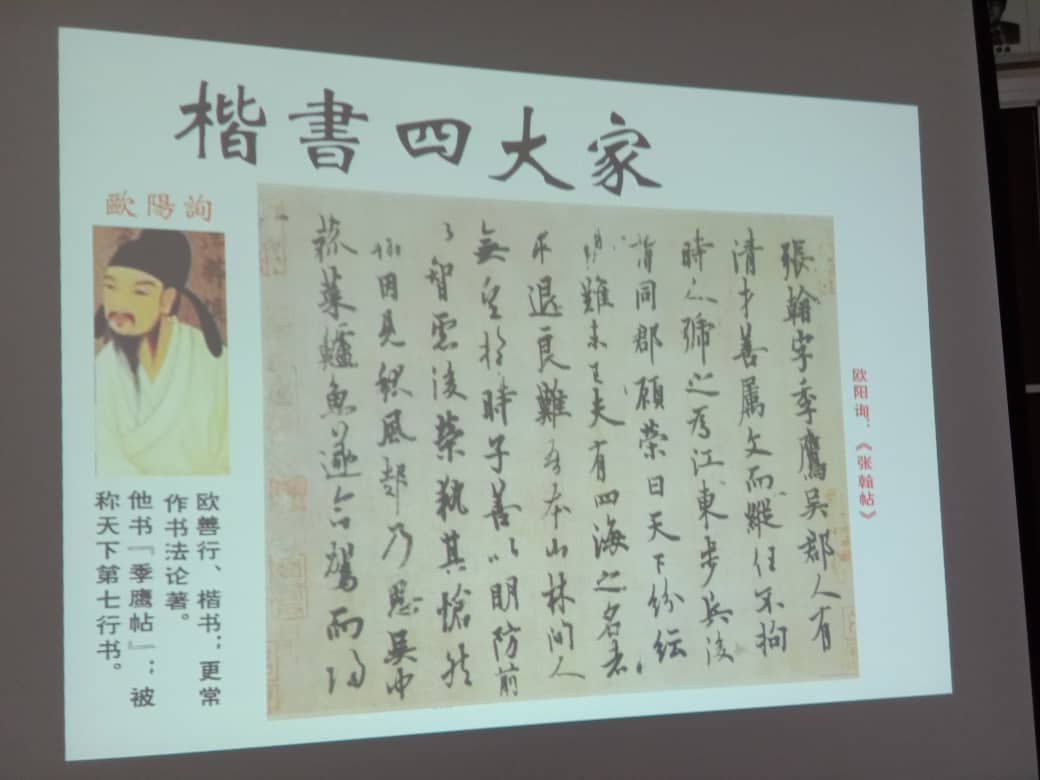 楷書四大家
歐陽詢
欧善行、楷书；更常
作书法论著。
他书『季鹰帖』；被
称天下第七行书。
張翰字季鷹吳郡人有
清才善属文而縱任不拘
時人號之為江東步兵後
謂同郡顧榮曰天下紛紜
難未已夫有四海之名者
求退良難吾本山林間人
無望於時子善以明防前
以智慮後榮執其愴然
翰因見秋風起乃思吳中
菰菜鱸魚遂命駕而歸
欧阳询：《张翰帖》